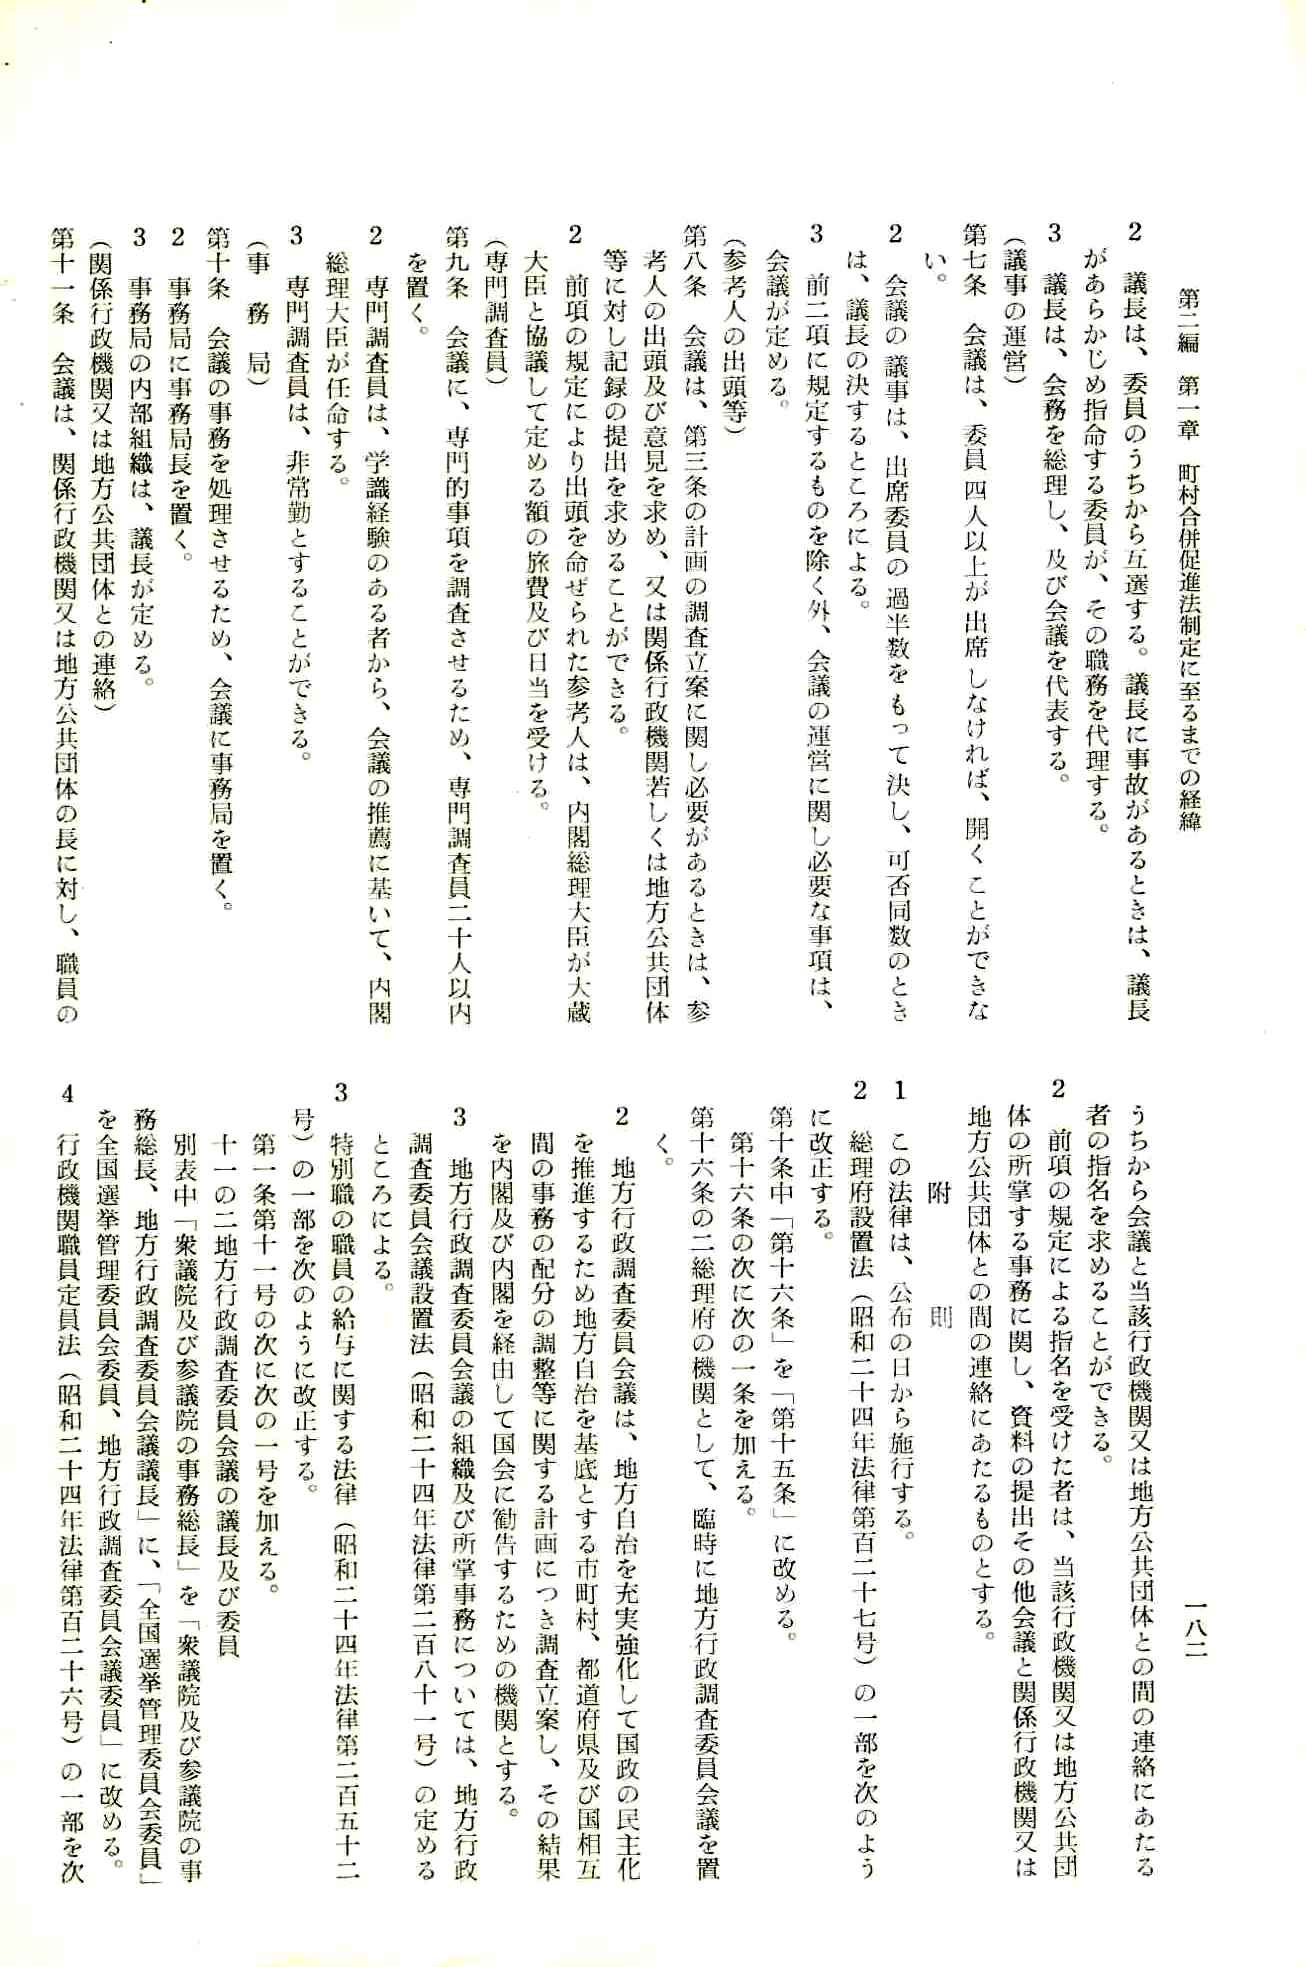 第二編　第一章　町村合併促進法制定に至るまでの経緯
一八二
2　議長は、委員のうちから互選する。議長に事故があるときは、議長
があらかじめ指命する委員が、その職務を代理する。
3　議長は、会務を総理し、及び会議を代表する。
（議事の運営）
第七条　会議は、委員四人以上が出席しなければ、開くことができな
い。
2　会議の議事は、出席委員の過半数をもって決し、可否同数のとき
は、議長の決するところによる。
3　前二項に規定するものを除く外、会議の運営に関し必要な事項は、
会議が定める。
（参考人の出頭等）
第八条　会議は、第三条の計画の調査立案に関し必要があるときは、参
考人の出頭及び意見を求め、又は関係行政機関若しくは地方公共団体
等に対し記録の提出を求めることができる。
2　前項の規定により出頭を命ぜられた参考人は、内閣総理大臣が大蔵
大臣と協議して定める額の旅費及び日当を受ける。
（専門調査員）
第九条　会議に、専門的事項を調査させるため、専門調査員二十人以内
を置く。
2　専門調査員は、学識経験のある者から、会議の推薦に基いて、内閣
総理大臣が任命する。
3　専門調査員は、非常勤とすることができる。
（事　務　局）
第十条　会議の事務を処理させるため、会議に事務局を置く。
2　事務局に事務局長を置く。
3　事務局の内部組織は、議長が定める。
（関係行政機関又は地方公共団体との連絡）
第十一条　会議は、関係行政機関又は地方公共団体の長に対し、職員の
うちから会議と当該行政機関又は地方公共団体との間の連絡にあたる
者の指名を求めることができる。
2　前項の規定による指名を受けた者は、当該行政機関又は地方公共団
体の所掌する事務に関し、資料の提出その他会議と関係行政機関又は
地方公共団体との間の連絡にあたるものとする。
附　則
1　この法律は、公布の日から施行する。
2　総理府設置法（昭和二十四年法律第百二十七号）の一部を次のよう
に改正する。
第十条中「第十六条」を「第十五条」に改める。
第十六条の次に次の一条を加える。
第十六条の二総理府の機関として、臨時に地方行政調査委員会議を置
く。
2　地方行政調査委員会議は、地方自治を充実強化して国政の民主化
を推進するため地方自治を基底とする市町村、都道府県及び国相互
間の事務の配分の調整等に関する計画につき調査立案し、その結果
を内閣及び内閣を経由して国会に勧告するための機関とする。
3　地方行政調査委員会議の組織及び所掌事務については、地方行政
調査委員会議設置法（昭和二十四年法律第二百八十一号）の定める
ところによる。
3　特別職の職員の給与に関する法律（昭和二十四年法律第二百五十二
号）の一部を次のように改正する。
第一条第十一号の次に次の一号を加える。
十一の二地方行政調査委員会議の議長及び委員
別表中「衆議院及び参議院の事務総長」を「衆議院及び参議院の事
務総長、地方行政調査委員会議議長」に、「全国選挙管理委員会委員」
を全国選挙管理委員会委員、地方行政調査委員会議委員」に改める。
4　行政機関職員定員法（昭和二十四年法律第百二十六号）の一部を次